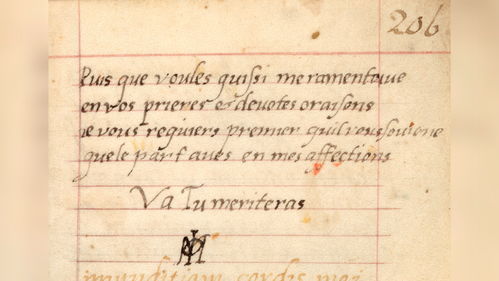 206
Puis que voules quissi me ramentoiue
en vos prieres & deuotes oraisons
ie vous requiers premier quil vous souione
quele part aues en mes affections
Va Tu meriteras
cordis mei